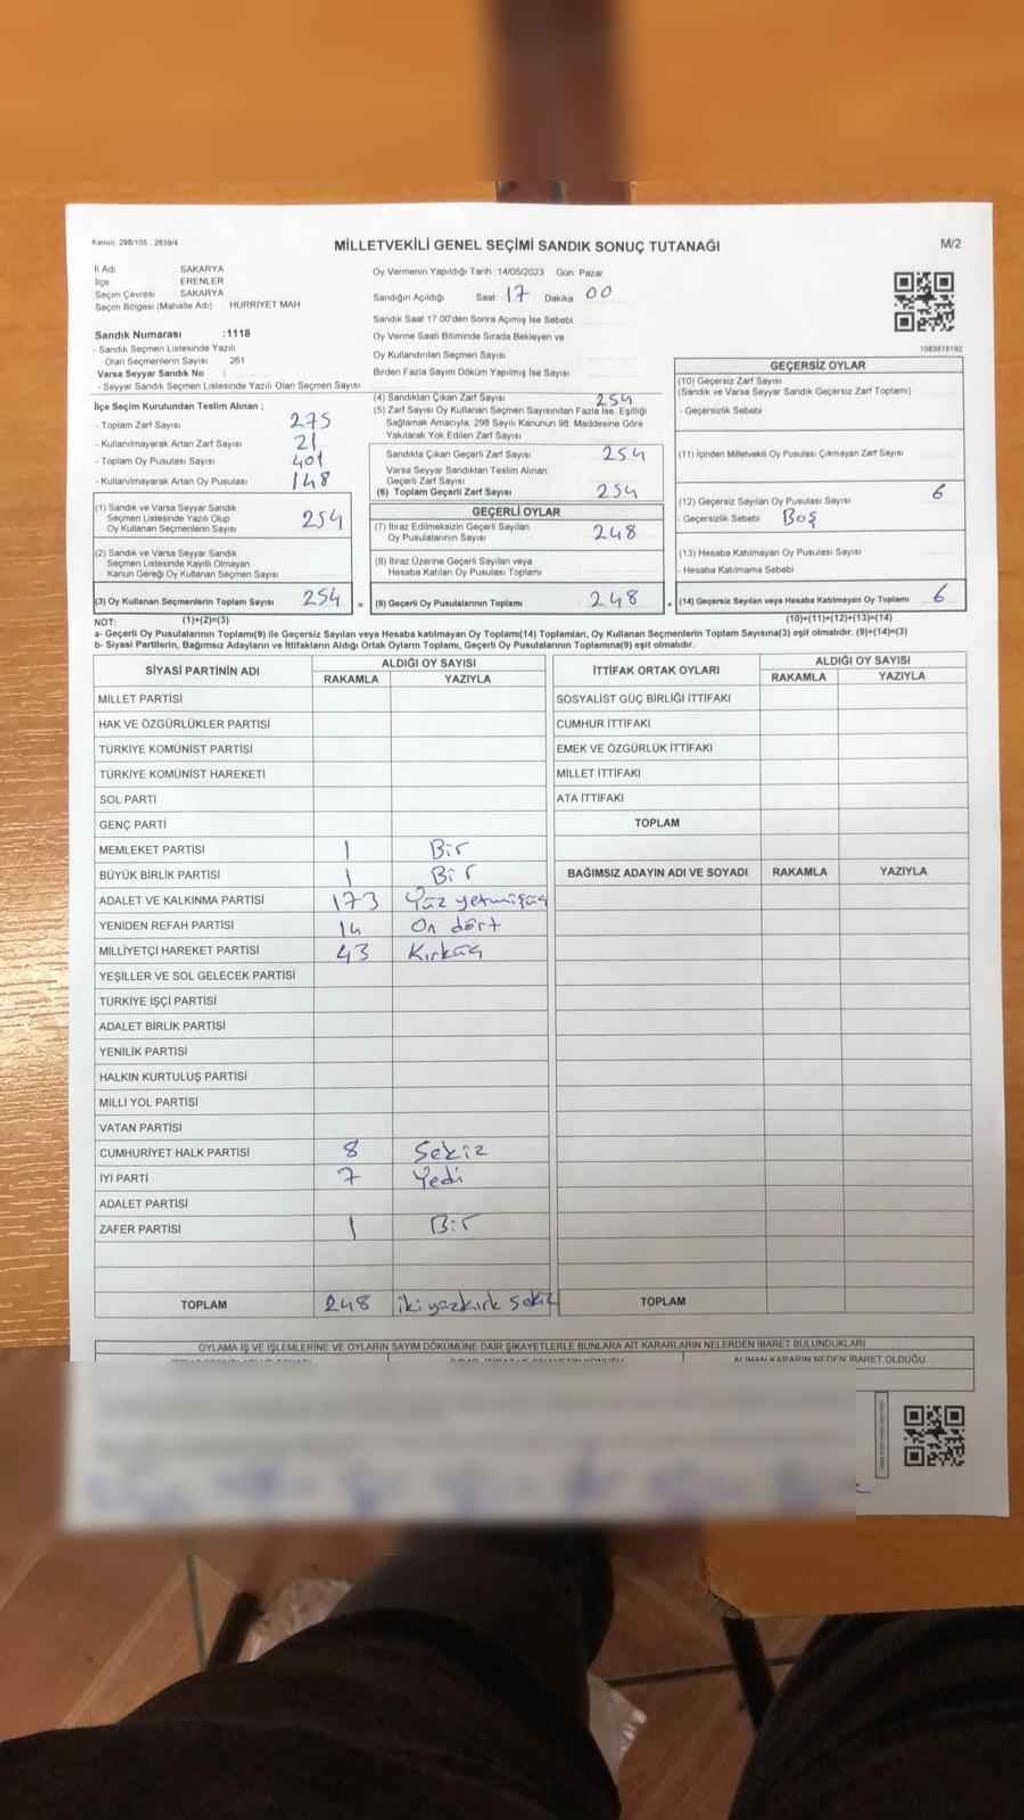 Kanun: 298/105 , 2839/4
MİLLETVEKİLİ GENEL SEÇİMİ SANDIK SONUÇ TUTANAĞI
M/2
İl Adı SAKARYA
İlçe ERENLER
Seçim Çevresi SAKARYA
Seçim Bölgesi (Mahalle Adı) HURRIYET MAH
Sandık Numarası :1118
- Sandık Seçmen Listesinde Yazılı
Olan Seçmenlerin Sayısı 261
Varsa Seyyar Sandık No
- Seyyar Sandık Seçmen Listesinde Yazılı Olan Seçmen Sayısı
Oy Vermenin Yapıldığı Tarih: 14/05/2023 Gün: Pazar
Sandığın Açıldığı Saat 17 Dakika 00
Sandık Saat 17.00'den Sonra Açılmış İse Sebebi
Oy Verme Saati Bitiminde Sırada Bekleyen ve
Oy Kullandırılan Seçmen Sayısı
Birden Fazla Sayım Döküm Yapılmış İse Sayısı
İlçe Seçim Kurulundan Teslim Alınan :
- Toplam Zarf Sayısı 275
- Kullanılmayarak Artan Zarf Sayısı 21
- Toplam Oy Pusulası Sayısı 401
- Kullanılmayarak Artan Oy Pusulası 148
(1) Sandık ve Varsa Seyyar Sandık
Seçmen Listesinde Yazılı Olup
Oy Kullanan Seçmenlerin Sayısı 254
(2) Sandık ve Varsa Seyyar Sandık
Seçmen Listesinde Kayıtlı Olmayan
Kanun Gereği Oy Kullanan Seçmen Sayısı
(3) Oy Kullanan Seçmenlerin Toplam Sayısı 254
(4) Sandıktan Çıkan Zarf Sayısı 254
(5) Zarf Sayısı Oy Kullanan Seçmen Sayısından Fazla İse, Eşitliği
Sağlamak Amacıyla, 298 Sayılı Kanunun 98. Maddesine Göre
Yakılarak Yok Edilen Zarf Sayısı
Sandıkta Çıkan Geçerli Zarf Sayısı 254
Varsa Seyyar Sandıktan Teslim Alınan
Geçerli Zarf Sayısı
(6) Toplam Geçerli Zarf Sayısı 254
GEÇERLİ OYLAR
(7) İtiraz Edilmeksizin Geçerli Sayılan
Oy Pusulalarının Sayısı 248
(8) İtiraz Üzerine Geçerli Sayılan veya
Hesaba Katılan Oy Pusulası Toplamı
= (9) Geçerli Oy Pusulalarının Toplamı 248
GEÇERSİZ OYLAR
(10) Geçersiz Zarf Sayısı
(Sandık ve Varsa Seyyar Sandık Geçersiz Zarf Toplamı)
- Geçersizlik Sebebi
(11) İçinden Milletvekili Oy Pusulası Çıkmayan Zarf Sayısı
(12) Geçersiz Sayılan Oy Pusulası Sayısı 6
- Geçersizlik Sebebi Boş
(13) Hesaba Katılmayan Oy Pusulası Sayısı
- Hesaba Katılmama Sebebi
+ (14) Geçersiz Sayılan veya Hesaba Katılmayan Oy Toplamı 6
NOT: (1)+(2)=(3) (10)+(11)+(12)+(13)=(14)
a- Geçerli Oy Pusulalarının Toplamı(9) ile Geçersiz Sayılan veya Hesaba katılmayan Oy Toplamı(14) Toplamları, Oy Kullanan Seçmenlerin Toplam Sayısına(3) eşit olmalıdır. (9)+(14)=(3)
b- Siyasi Partilerin, Bağımsız Adayların ve İttifakların Aldığı Ortak Oyların Toplamı, Geçerli Oy Pusulalarının Toplamına(9) eşit olmalıdır.
SİYASİ PARTİNİN ADI ALDIĞI OY SAYISI
RAKAMLA YAZIYLA
MİLLET PARTİSİ
HAK VE ÖZGÜRLÜKLER PARTİSİ
TÜRKİYE KOMÜNİST PARTİSİ
TÜRKİYE KOMÜNİST HAREKETİ
SOL PARTİ
GENÇ PARTİ
MEMLEKET PARTİSİ 1 Bir
BÜYÜK BİRLİK PARTİSİ 1 Bir
ADALET VE KALKINMA PARTİSİ 173 Yüz yetmişüç
YENİDEN REFAH PARTİSİ 14 On dört
MİLLİYETÇİ HAREKET PARTİSİ 43 Kırküç
YEŞİLLER VE SOL GELECEK PARTİSİ
TÜRKİYE İŞÇİ PARTİSİ
ADALET BİRLİK PARTİSİ
YENİLİK PARTİSİ
HALKIN KURTULUŞ PARTİSİ
MİLLİ YOL PARTİSİ
VATAN PARTİSİ
CUMHURİYET HALK PARTİSİ 8 Sekiz
İYİ PARTİ 7 Yedi
ADALET PARTİSİ
ZAFER PARTİSİ 1 Bir
TOPLAM 248 iki yüzkırk Sekiz
İTTİFAK ORTAK OYLARI ALDIĞI OY SAYISI
RAKAMLA YAZIYLA
SOSYALİST GÜÇ BİRLİĞİ İTTİFAKI
CUMHUR İTTİFAKI
EMEK VE ÖZGÜRLÜK İTTİFAKI
MİLLET İTTİFAKI
ATA İTTİFAKI
TOPLAM
BAĞIMSIZ ADAYIN ADI VE SOYADI RAKAMLA YAZIYLA
TOPLAM
OYLAMA İŞ VE İŞLEMLERİNE VE OYLARIN SAYIM DÖKÜMÜNE DAİR ŞİKAYETLERLE BUNLARA AİT KARARLARIN NELERDEN İBARET BULUNDUKLARI
ALINAN KARARIN NEDEN İBARET OLDUĞU